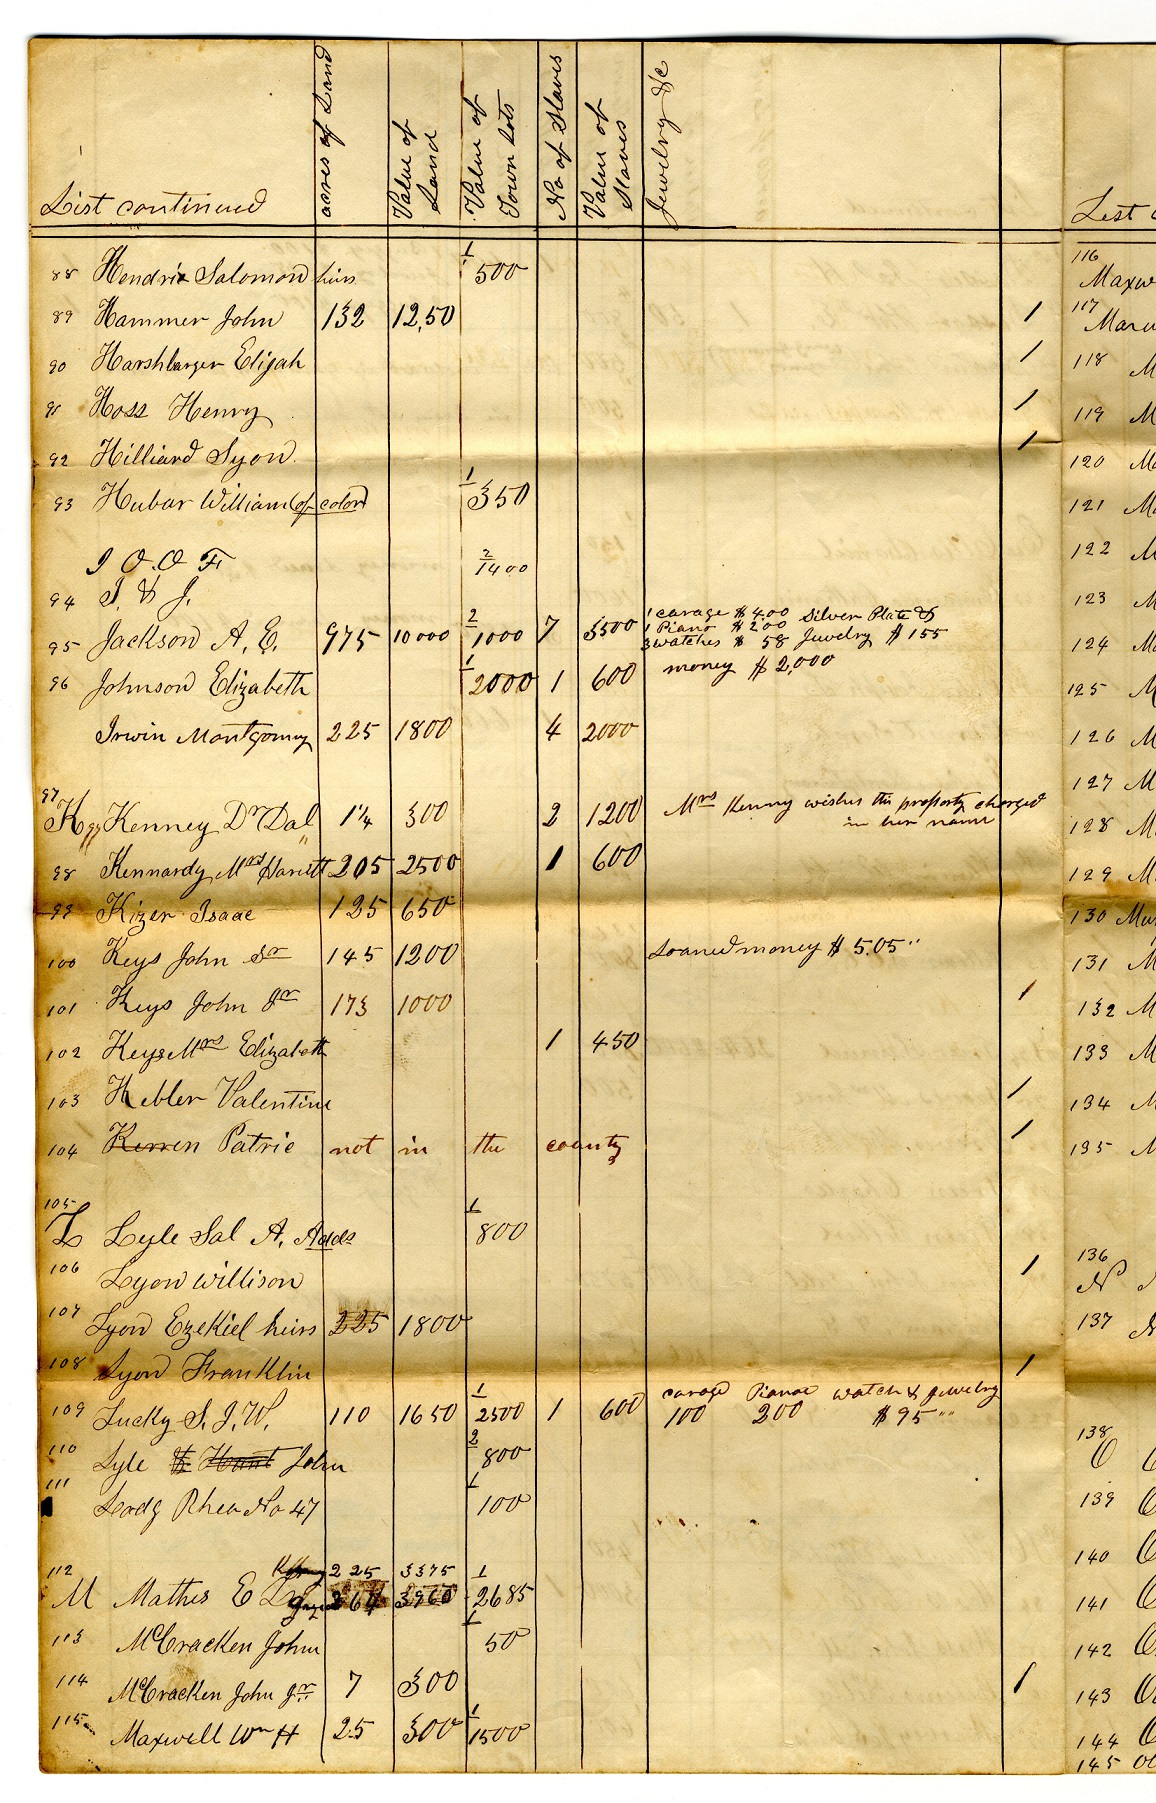 List continued acres of Land Value of Land Value of Town Lots No of Slaves Value of Slaves Jewelry &c
88 Hendrix Salomon heirs 1 500
89 Hammer John 132 12,50 1
90 Harshbarger Elijah 1
91 Hoss Henry 1
92 Hilliard Lyon 1
93 Hubar William (of color) 1 350
I O. O F. 2 1400
94 I. & J.
95 Jackson A. E. 975 10000 2 1000 7 3500 1 carage $400 Silver Plate &
1 Piano $200
3 watches $ 58 Jewelry $155
96 Johnson Elizabeth 1 2000 1 600 money $2,000
Irwin Montgomry 225 1800 4 2000
97
K Kenney Dr Dal 1¼ 300 2 1200 Mrs Kenny wishes this property charged
in her name
98 Kennardy Mrs Hariett 205 2500 1 600
99 Kizer Isaac 125 650
100 Keys John Sr 145 1200 Loaned money $ 5.05"
101 Keys John Jr 173 1000 1
102 Keys Mrs Elizabeth 1 450
103 Kebler Valentine 1
104 Kerren Patric not in the county 1
105
L Lyle Sal A. Adds 1 800
106 Lyon Willison 1
107 Lyon Ezekiel heirs 225 1800
108 Lyon Franklin 1
109 Lucky S. J. W. 110 1650 1 2500 1 600 carage Pianoe watch & Jewelry
100 200 $95"
110 Lyle & Hunt John 2 800
111 Lodg Rhea No 47 1 100
112 225 3375 1
M Mathes E L 264 3960 2685
113 McCracken John 1 50
114 McCracken John Jr 7 300 1
115 Maxwell Wm H 25 300 1 1500
List
116
Maxw
117
118 M
119 M
120 M
121 M
122 M
123 M
124 M
125 M
126 M
127 M
128 M
129 M
130
131 M
132 M
133 M
134 M
135 M
136
N
137
138
O
139
140
141
142
143
144
145